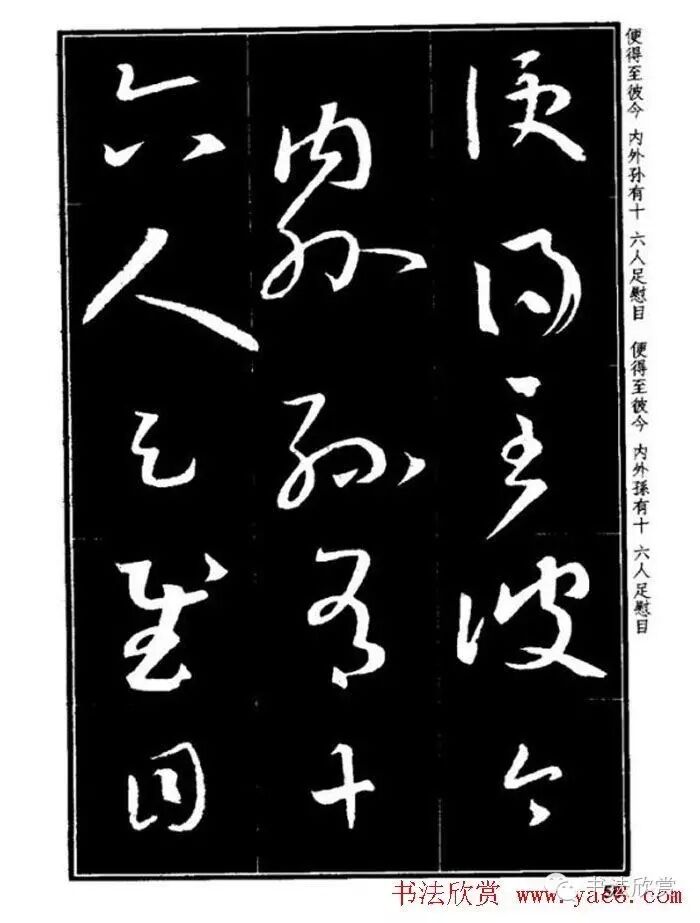 便得至彼今
内外孙有十
六人足慰目
便得至彼今 内外孙有十 六人足慰目
便得至彼今 内外孫有十 六人足慰目
书法欣赏 www.yac8.com
书法欣赏